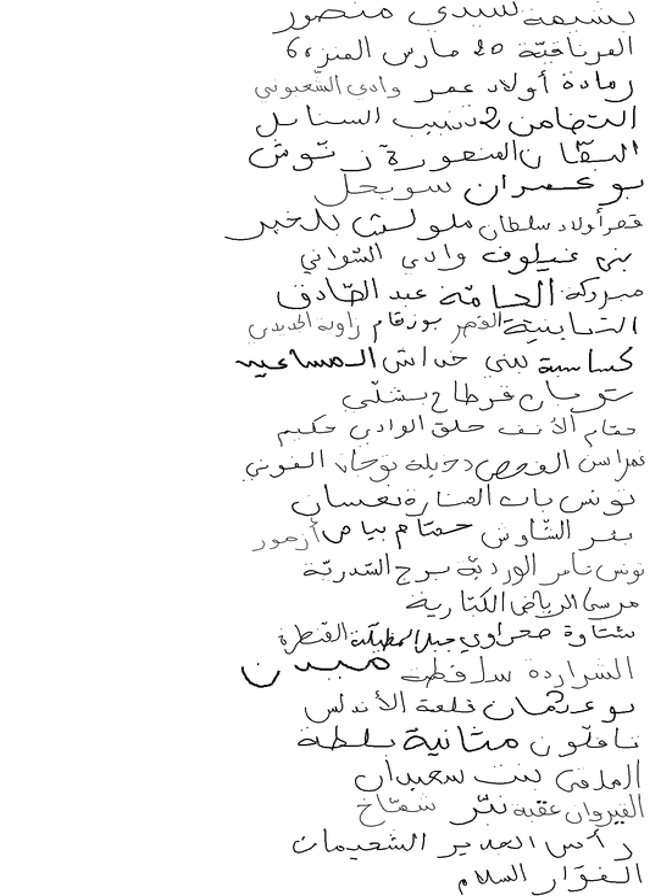 بشيمة سيدي منصور
العرناقيّة 20 مارس المنزه 6
رمادة أولاد عمر وادي الشّعبوني
التضامن 2 نسيب السنابل
البقّان المنعورة زنّوش
بوعمران سويحل
قصر أولاد سلطان ملولش بلخير
بني غيلوف وادي الشواني
مبروكة الحامّة عبد الصّادق
التبابنية القصر بوزقام زاوية الجديدي
كساسبة بني خداش المساعيد
توبان قرطاج بشلّي
حمّام الأنف حلق الوادي حكيم
غمراسن الفحص دخيلة توجان الفوني
تونس باب المنارة نعسان
بئر الشّاوش حمّام بياض أزمور
تونس ثامر الورديّة برج السّدريّة
مرسى الرياض الكتارية
شتاوة صحراوي جبل المطيلّة القنطرة
الشراردة سلقطة ميدن
بوعثمان قلعة الأندلس
تاقلّون متانية بلطة
العلا بنت سعيدان
القيروان عقبة نبّر شمّاخ
رأس الغدير الشعيمات
الفوّار السلام